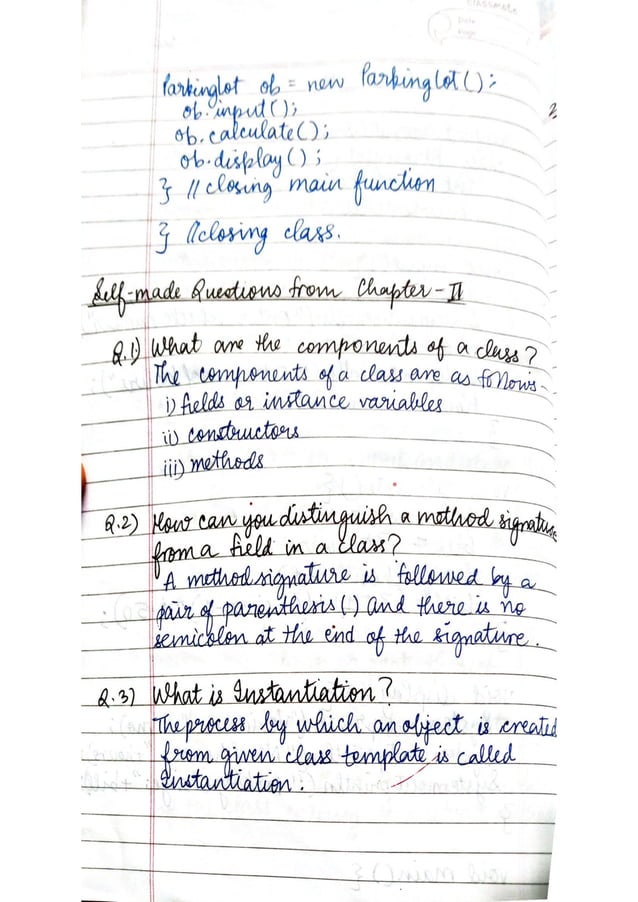 classmate
Date
Page
ParkingLot ob = new ParkingLot();
ob.input();
ob.calculate();
ob.display();
} // closing main function
} //closing class.
Self-made Questions from Chapter-II
Q.1) What are the components of a class?
The components of a class are as follows-
i) fields or instance variables
ii) constructors
iii) methods
Q.2) How can you distinguish a method signature
from a field in a class?
A method signature is followed by a
pair of parenthesis () and there is no
semicolon at the end of the signature.
Q.3) What is Instantiation?
The process by which an object is created
from given class template is called
Instantiation.